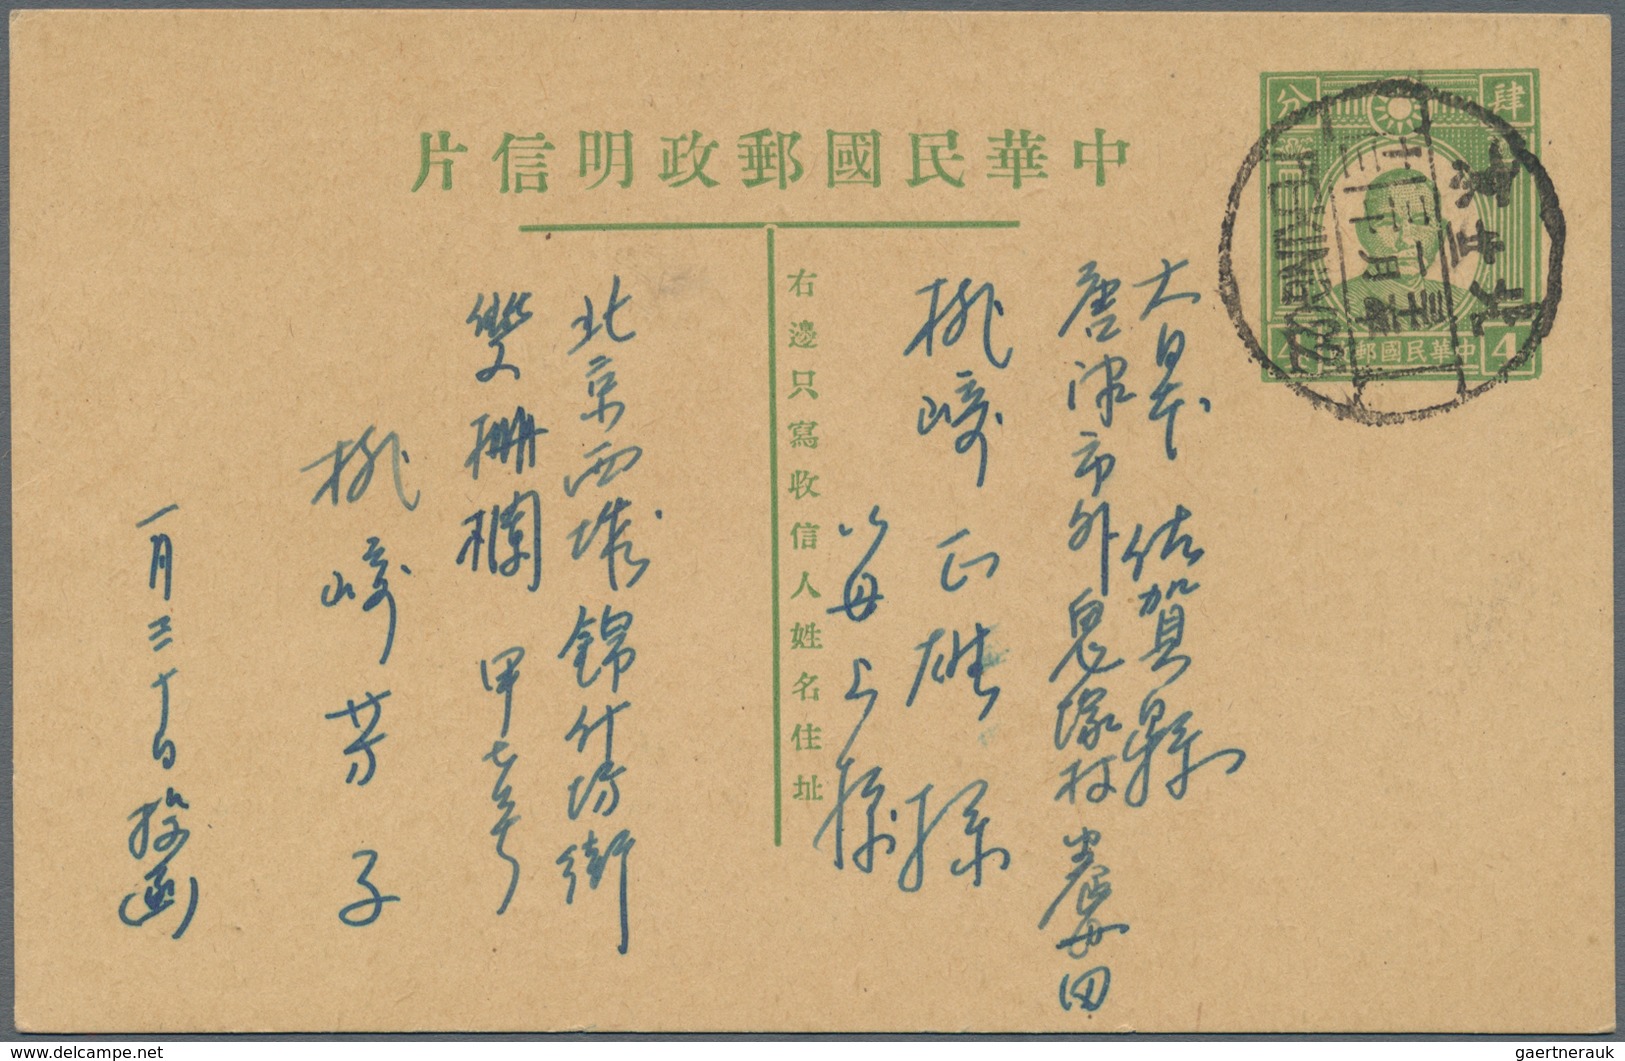 中華民國郵政明信片
分 肆
中華民國郵
4
PEKING
右邊只寫收信人姓名住址
大日本 佐賀縣
唐津市外鬼塚村養母田
桃崎正雄様
母上様
北京西城錦什坊街
雙柵欄 甲七号
桃崎芳子
一月三十日
www.delcampe.net
gaertnerauk